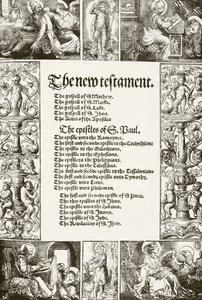 The new testament.
The gospell of S. Mathew.
The gospell of S. Marke.
The gospell of S. Luke.
The gospell of S. Jhon.
The Actes of the Apostles
The epistles of S. Paul.
The epistle unto the Romayns.
The first and seconde epistle to the Corinthians
The epistle to the Galathians.
The epistle to the Ephesians.
The epistle to the Philippians.
The epistle to the Colossians.
The first and seconde epistle to the Tessalonians
The first and seconde epistle unto Tymothy.
The epistle unto Titus.
The epistle unto Philemon.
The first and seconde epistle of S. Peter.
The thre epistles of S. Jhon.
The epistle unto the Hebrues.
The epistle of S. James.
The epistle of S. Jude.
The Revelacion of S. Jhon.